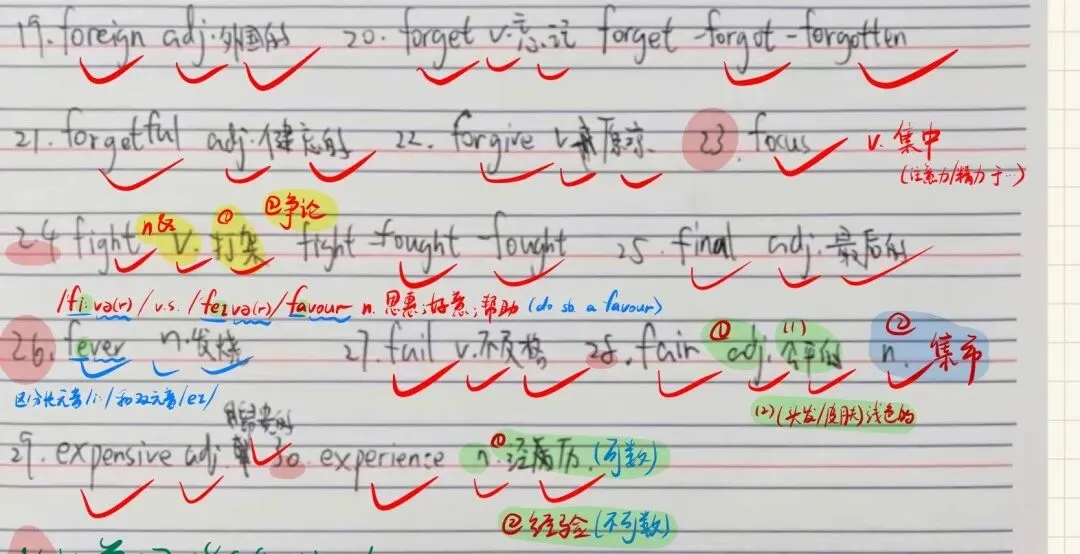 19. foreign adj.外国的 20. forget v.忘记 forget -forgot -forgotten
21. forgetful adj.健忘的 22. forgive v.原谅. 23. focus v. 集中
(注意力/精力于…)
24 fight n& v. ①打架 ②争论 fight -fought -fought 25. final adj.最后的
/fi:və(r)/ v.s. /feɪvə(r)/ favour n. 恩惠;好意;帮助 (do sb a favour)
26. fever n.发烧 27. fail v.不及格 28. fair ① adj. (1)公平的 ② n. 集市
区分长元音/i:/和双元音/eɪ/ (2)(头发/皮肤)浅色的
昂贵的
29. expensive adj. 30. experience n.①经历.(可数)
②经验(不可数)